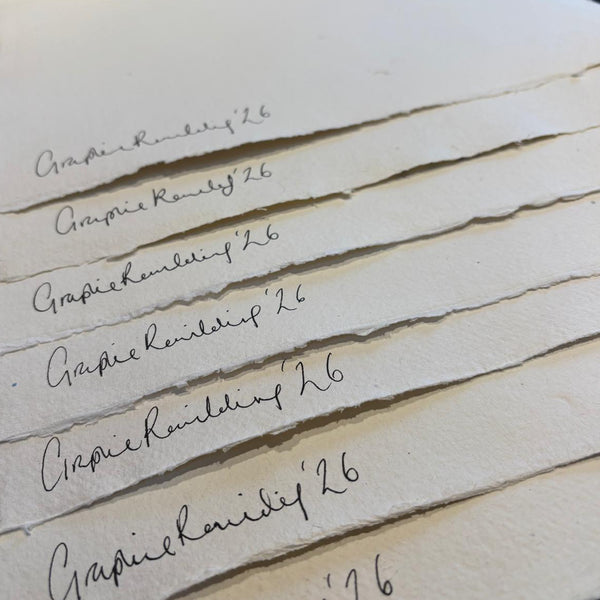 Graphic Rewilding '26
Graphic Rewilding '26
Graphic Rewilding '26
Graphic Rewilding '26
Graphic Rewilding '26
Graphic Rewilding '26
'26